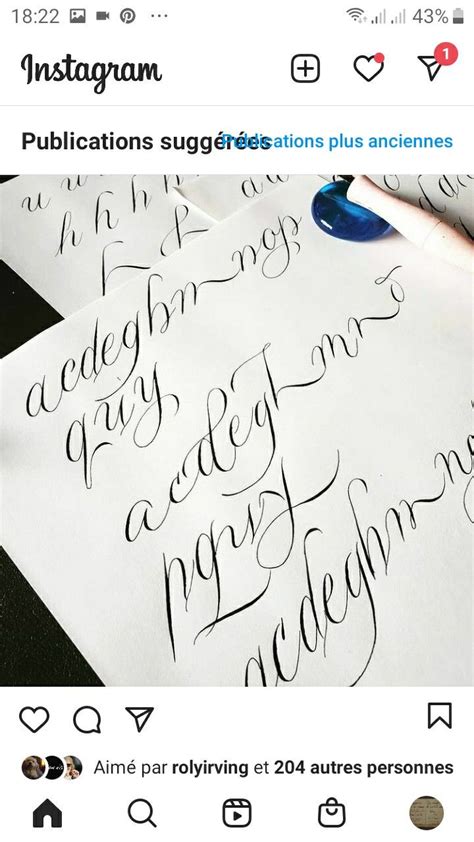 18:22 43%
Instagram
1
Publications suggérées Publications plus anciennes
u u
h h h h
acdeghmnop
quy
acdeghmno
acdeghmno
Aimé par rolyirving et 204 autres personnes